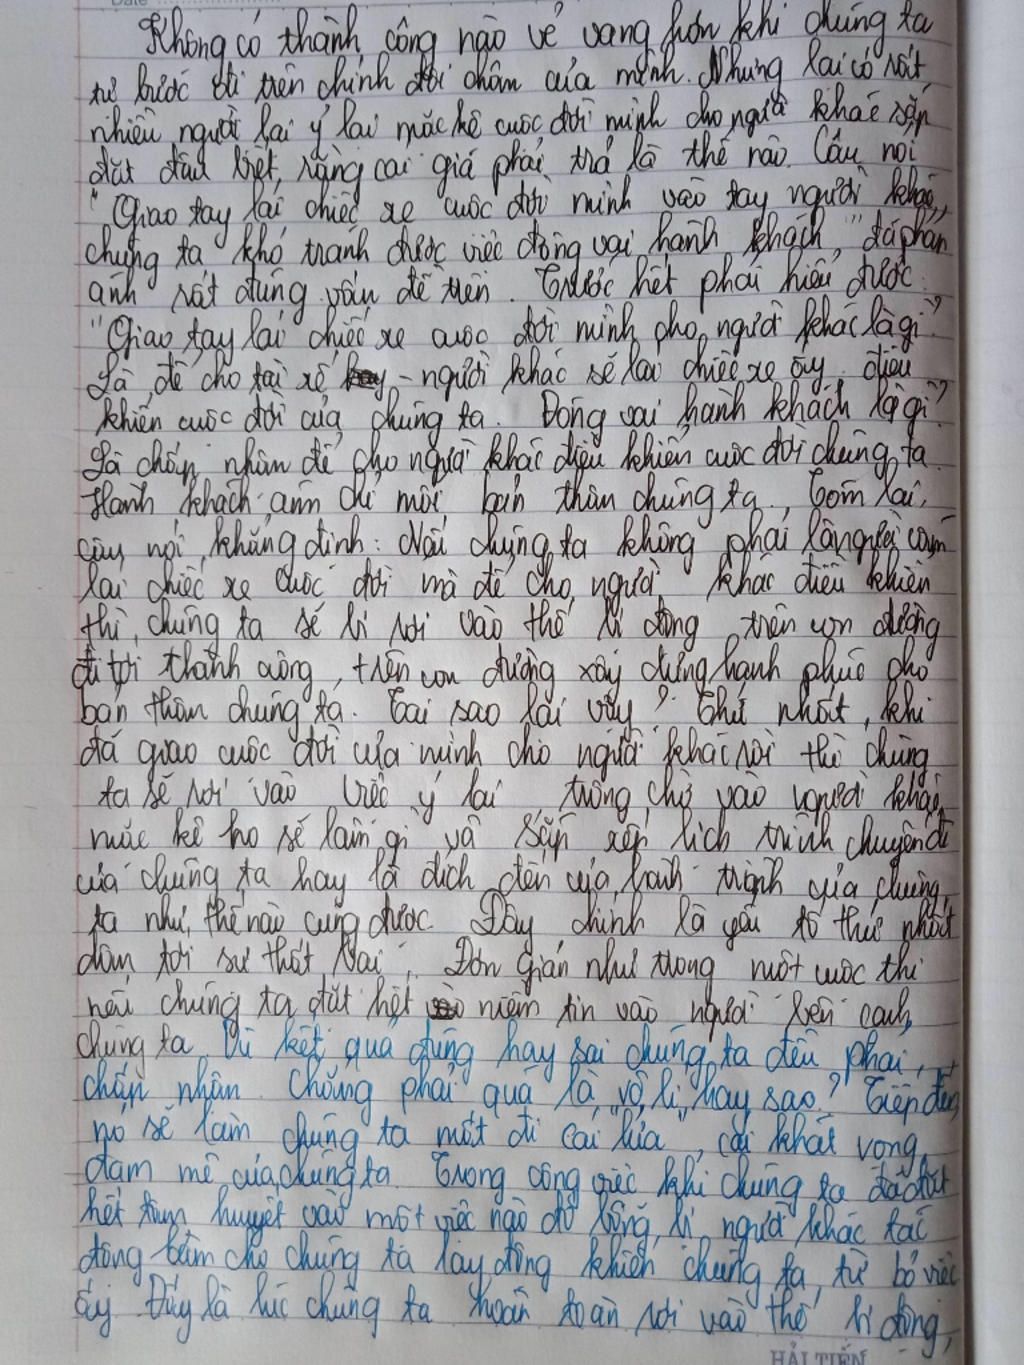 Không có thành công nào vẻ vang hơn khi chúng ta
tự bước đi trên chính đôi chân của mình. Nhưng lại có rất
nhiều người lại ỷ lại mặc kệ cuộc đời mình cho người khác sắp
đặt đâu biết, rằng cái giá phải trả là thế nào. Câu nói
"Giao tay lái chiếc xe cuộc đời mình vào tay người khác,
chúng ta khó tránh được việc đóng vai hành khách," đã phản
ánh rất đúng vấn đề trên. Trước hết phải hiểu được
"Giao tay lái chiếc xe cuộc đời mình cho người khác là gì?
Là để cho tài xế - người khác sẽ lái chiếc xe ấy điều
khiển cuộc đời của chúng ta. Đóng vai hành khách là gì?
Là chấp nhận để cho người khác điều khiển cuộc đời chúng ta.
Hành khách ám chỉ mỗi bản thân chúng ta. Tóm lại,
câu nói khẳng định: Nếu chúng ta không phải là người cầm
lái chiếc xe cuộc đời mà để cho người khác điều khiển
thì, chúng ta sẽ bị rơi vào thế bị động trên con đường
đi tới thành công, trên con đường xây dựng hạnh phúc cho
bản thân chúng ta. Tại sao lại vậy? Thứ nhất, khi
đã giao cuộc đời của mình cho người khác rồi thì chúng
ta sẽ rơi vào việc ỷ lại trông chờ vào người khác,
mặc kệ họ sẽ làm gì và sắp xếp lịch trình chuyến đi
của chúng ta hay là đích đến của hành trình của chúng
ta như thế nào cũng được. Đây chính là yếu tố thứ nhất
dẫn tới sự thất bại. Đơn giản như trong một cuộc thi
nếu chúng ta đặt hết niềm tin vào người bên cạnh
chúng ta. Dù kết quả đúng hay sai chúng ta đều phải
chấp nhận. Chẳng phải quá là "vô lí" hay sao? Tiếp đến,
nó sẽ làm chúng ta mất đi cái lửa, cái khát vọng
đam mê của chúng ta. Trong công việc khi chúng ta đã đặt
hết tâm huyết vào một việc nào đó bỗng bị người khác tác
động làm cho chúng ta lay động khiến chúng ta từ bỏ việc
ấy. Đấy là lúc chúng ta hoàn toàn rơi vào thế bị động,
HẢI TIẾN